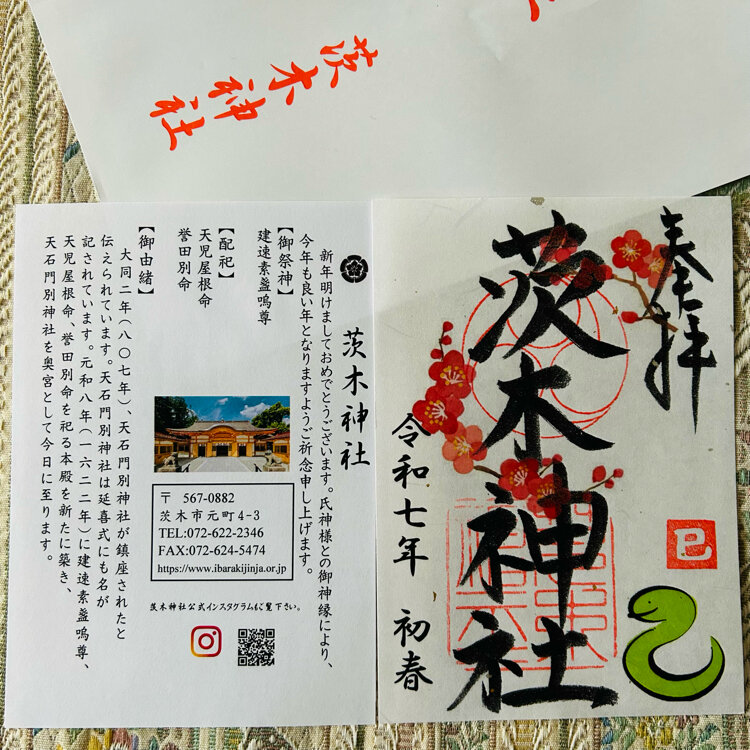 茨木神社
茨木神社
新年明けましておめでとうございます。氏神様との御神縁により、
今年も良い年となりますようご祈念申し上げます。
【御祭神】
建速素盞嗚尊
【配祀】
天児屋根命
誉田別命
【御由緒】
大同二年（八〇七年）、天石門別神社が鎮座されたと
伝えられています。天石門別神社は延喜式にも名が
記されています。元和八年（一六二二年）に建速素盞嗚尊、
天児屋根命、誉田別命を祀る本殿を新たに築き、
天石門別神社を奥宮として今日に至ります。
〒 567-0882
茨木市元町4-3
TEL:072-622-2346
FAX:072-624-5474
https://www.ibarakijinja.or.jp
茨木神社公式インスタグラムもご覧下さい。
奉拝
茨木神社
令和七年 初春
巳